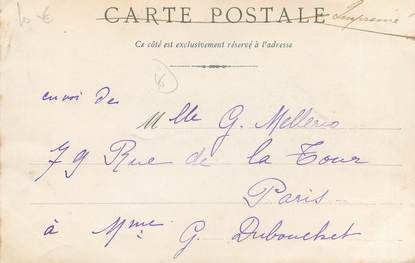 10 €
CARTE POSTALE
Imprimé
Ce côté est exclusivement réservé à l'adresse
6
envoi de
Mlle G. Mellerio
79 Rue de la Tour
Paris
à Mme G. Dubouchet